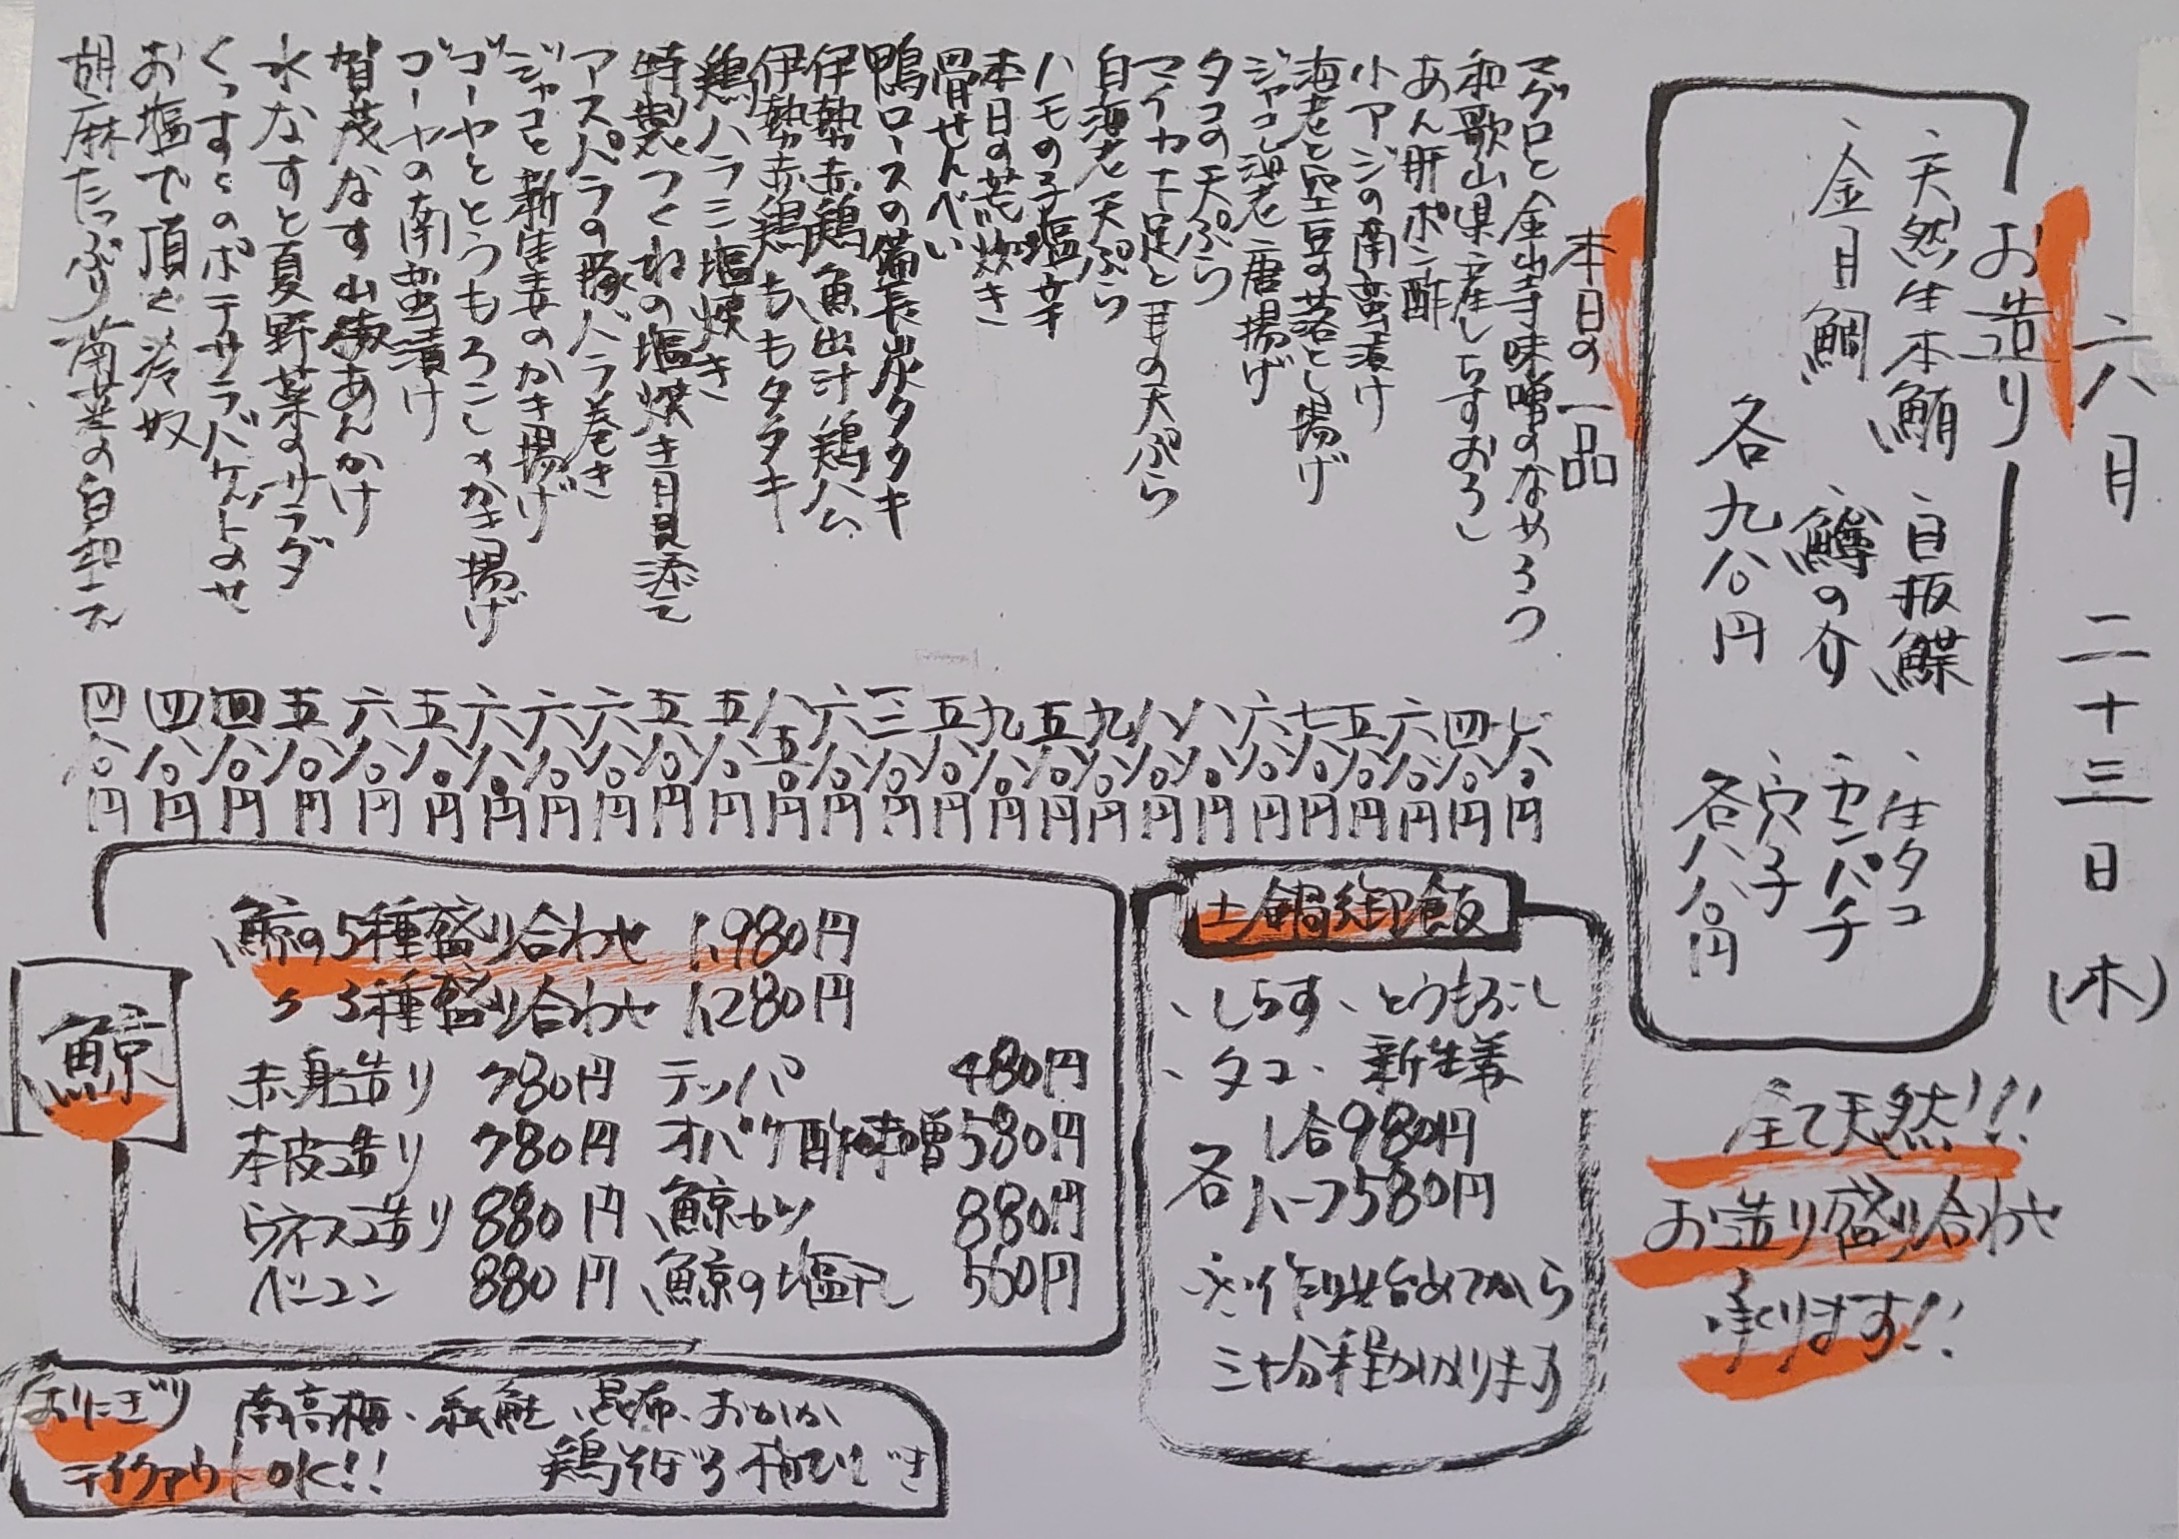 六月 二十三日(木)
お造り
、天然生本鮪 、目板鰈 、生タコ
、金目鯛 、鱒の介 、カンパチ
、穴子
各九八〇円 各八八〇円
全て天然!!!
お造り盛り合わせ
承ります!!
本日の一品
マグロと金山寺味噌のなめろう 七八〇円
和歌山県産しらすおろし 四八〇円
あん肝ポン酢 六八〇円
小アジの南蛮漬け 五八〇円
海老と空豆の落とし揚げ 七八〇円
ジャコし海老唐揚げ 六八〇円
タコの天ぷら 八八〇円
マイカ下足と耳の天ぷら 八八〇円
白海老天ぷら 九八〇円
ハモの子塩辛 五八〇円
本日の荒炊き 九八〇円
骨せんべい 五八〇円
鴨ロースの備長炭タタキ 三八〇円
伊勢赤鶏魚出汁鶏ハム 六八〇円
伊勢赤鶏もも タタキ 八五〇円
鶏ハラミ塩焼き 五八〇円
特製つくねの塩焼き月見添え 五八〇円
アスパラの豚バラ巻き 六八〇円
ジャコと新生姜のかき揚げ 六八〇円
ゴーヤととうもろこしのかき揚げ 六八〇円
ゴーヤの南蛮漬け 五八〇円
賀茂なす山椒あんかけ 六八〇円
水なすと夏野菜のサラダ 五八〇円
くっすんのポテサラバゲットのせ 四八〇円
お塩で頂く冷奴 四八〇円
胡麻たっぷり菊菜の白和え 四八〇円
土鍋御飯
、しらす、とうもろこし
、タコ、新生姜
各 1合980円
ハーフ580円
※作り始めてから
三十分程かかります
鯨
鯨の5種盛り合わせ 1,980円
〃 3種盛り合わせ 1,280円
赤身造り 780円 テッパ 480円
本皮造り 780円 オバケ酢味噌 580円
ウネス造り 880円 鯨カツ 880円
ベーコン 880円 鯨の塩タレ 550円
おにぎり 南高梅、紅鮭、昆布、おかか
テイクアウトOK!! 鶏そぼろ 梅ひじき